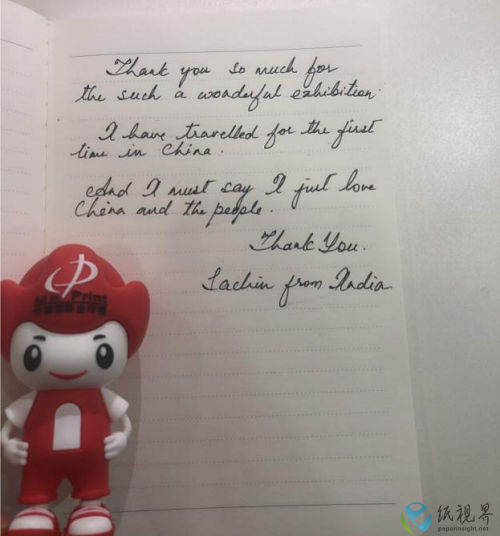 Thank you so much for
the such a wonderful exhibition.
I have travelled for the first
time in China.
And I must say I just love
China and the people.
Thank You.
Sachin from India
Print
纸视界
paperinsight.net